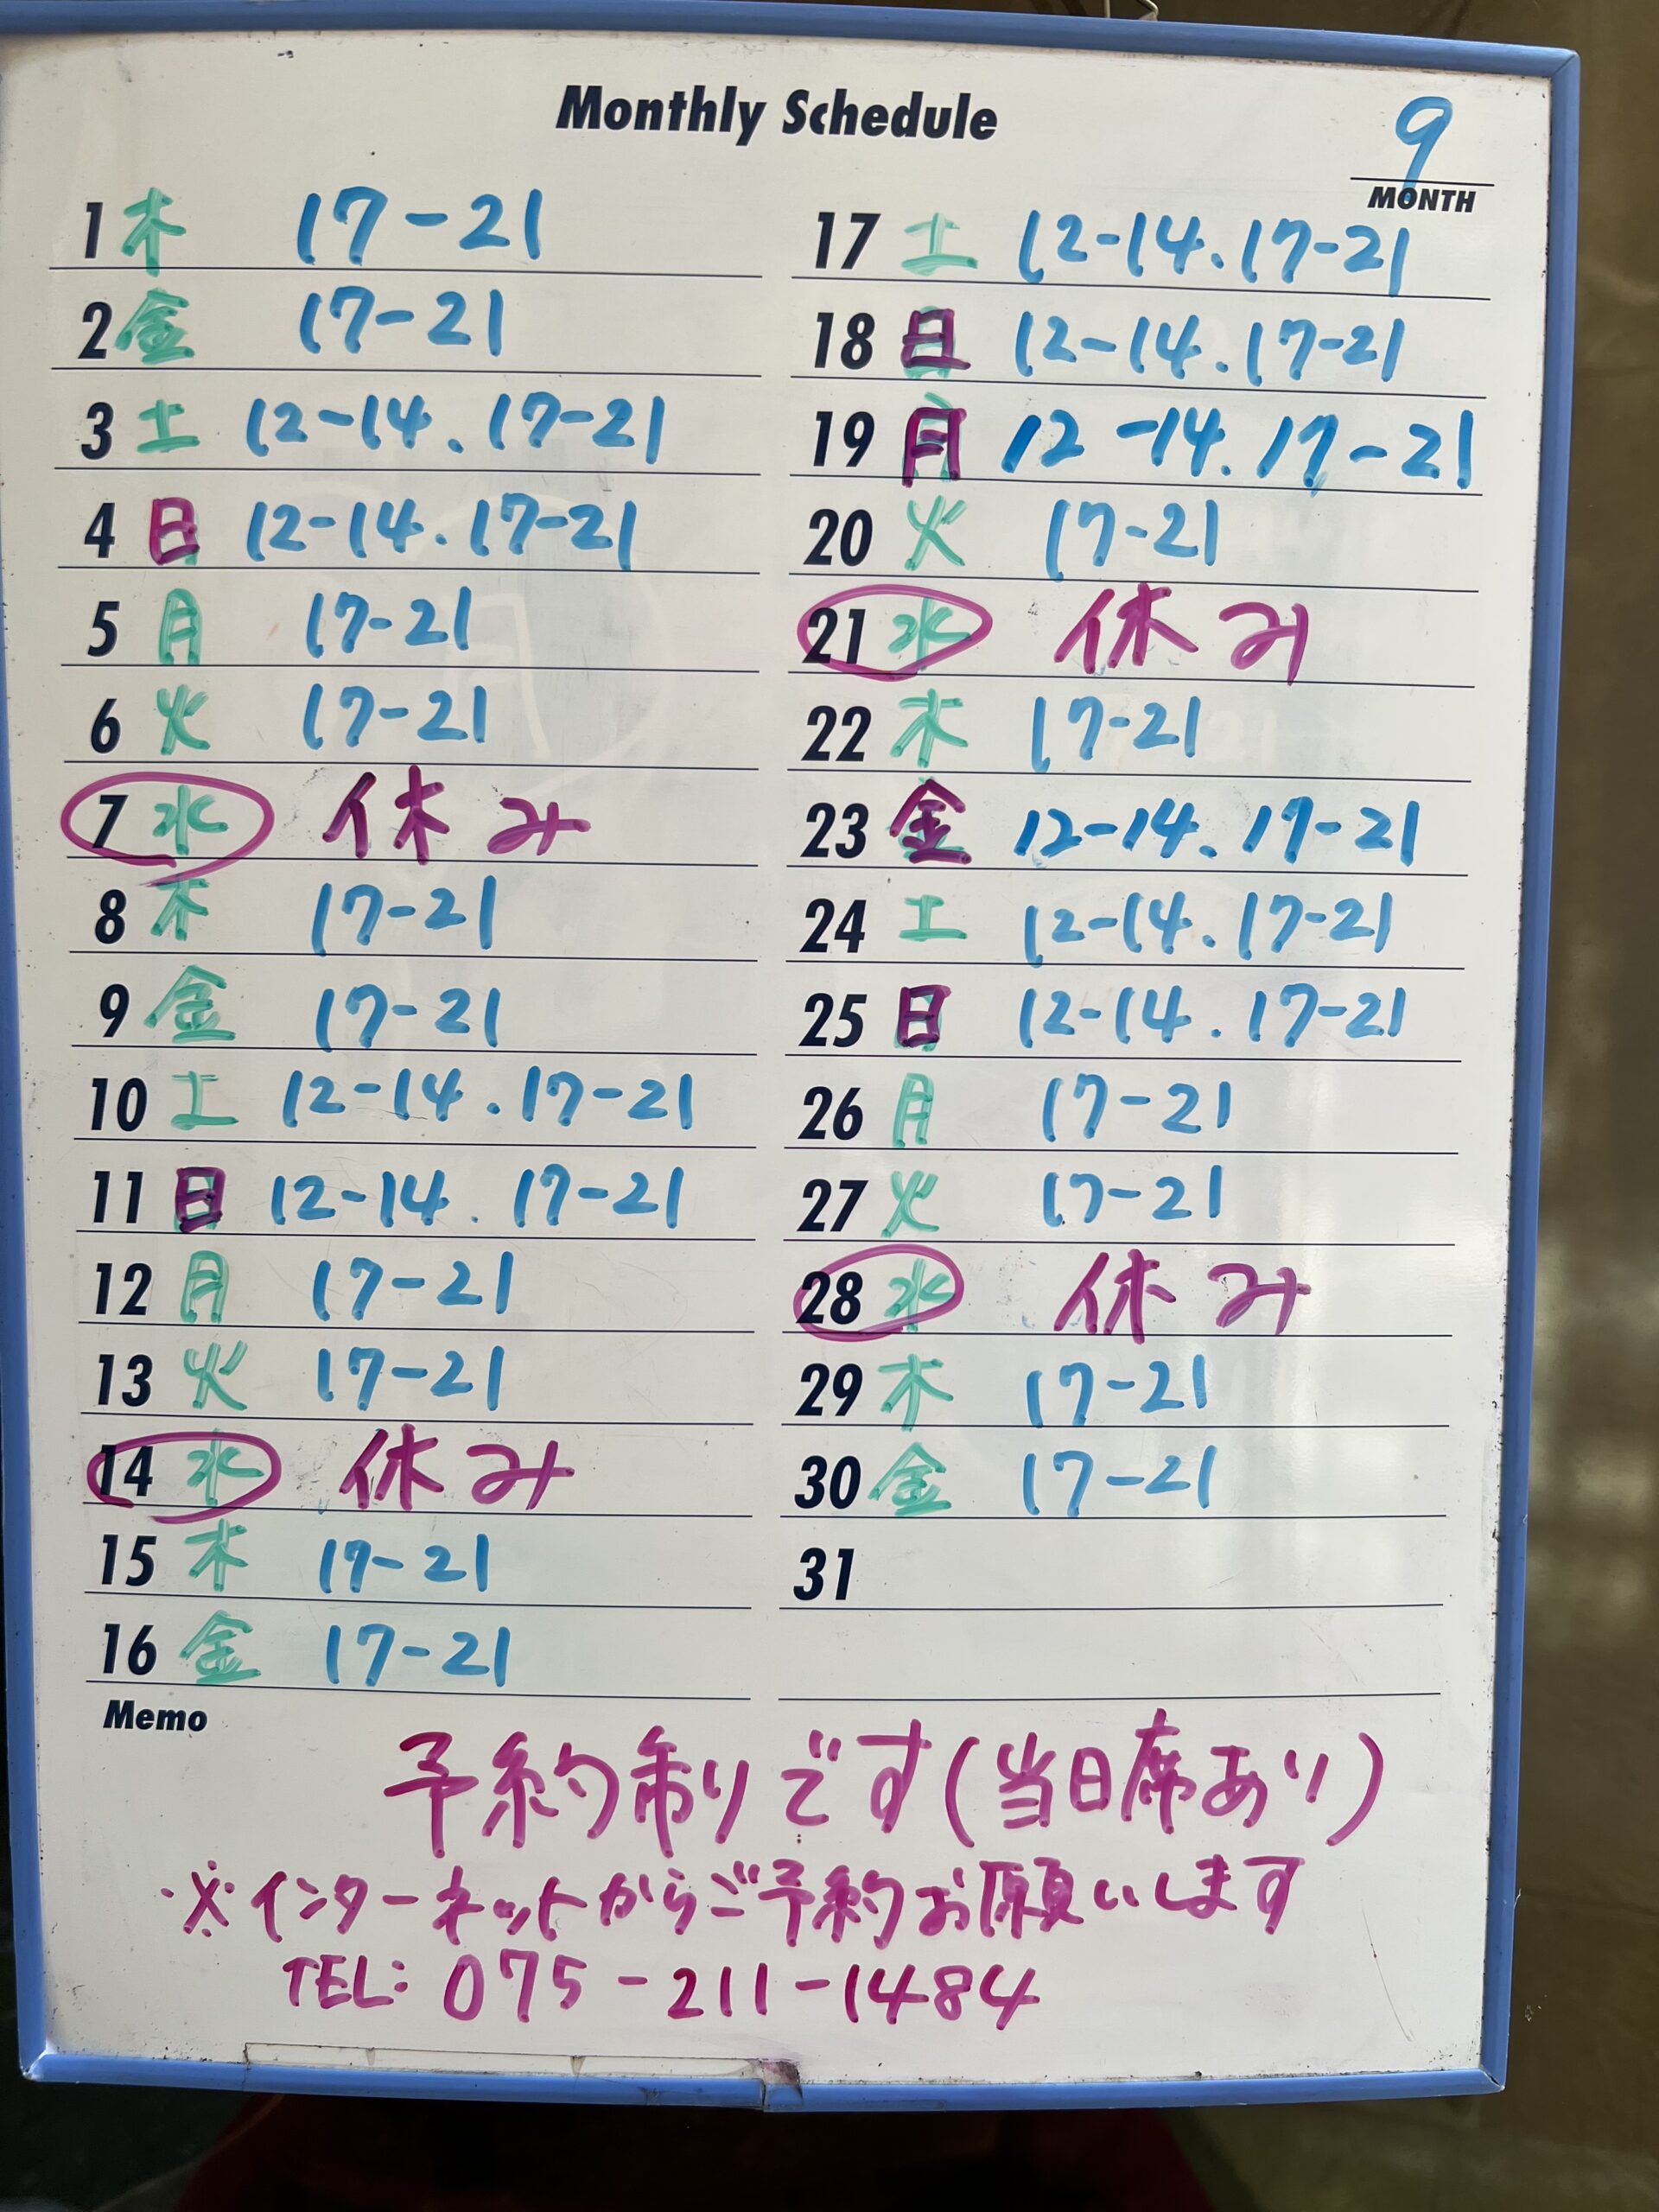 Monthly Schedule
9
MONTH
1 木 17-21
2 金 17-21
3 土 12-14.17-21
4 日 12-14.17-21
5 月 17-21
6 火 17-21
7 水 休み
8 木 17-21
9 金 17-21
10 土 12-14.17-21
11 日 12-14.17-21
12 月 17-21
13 火 17-21
14 水 休み
15 木 17-21
16 金 17-21
17 土 12-14.17-21
18 日 12-14.17-21
19 月 12-14.17-21
20 火 17-21
21 水 休み
22 木 17-21
23 金 12-14.17-21
24 土 12-14.17-21
25 日 12-14.17-21
26 月 17-21
27 火 17-21
28 水 休み
29 木 17-21
30 金 17-21
31
Memo
予約制です(当日席あり)
※インターネットからご予約お願いします
TEL: 075-211-1484